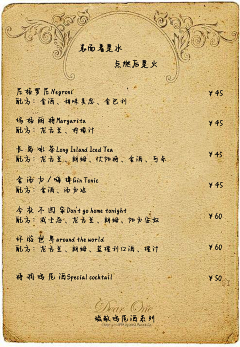 表面看是水
点燃后是火
尼格罗尼Negroni ¥45
配方：金酒、甜味美思、金巴利
玛格丽特Margarita ¥45
配方：龙舌兰、柠檬汁
长岛冰茶Long Island Iced Tea ¥45
配方：龙舌兰、朗姆、伏特加、金酒、可乐
金汤力/嗨棒Gin Tonic ¥45
配方：金酒、汤力水
今夜不回家Don't go home tonight ¥60
配方：威士忌、龙舌兰、朗姆、
环游世界around the world ¥60
配方：龙舌兰、朗姆、
特调鸡尾酒Special cocktail ¥50
Dear One
鸡尾酒系列